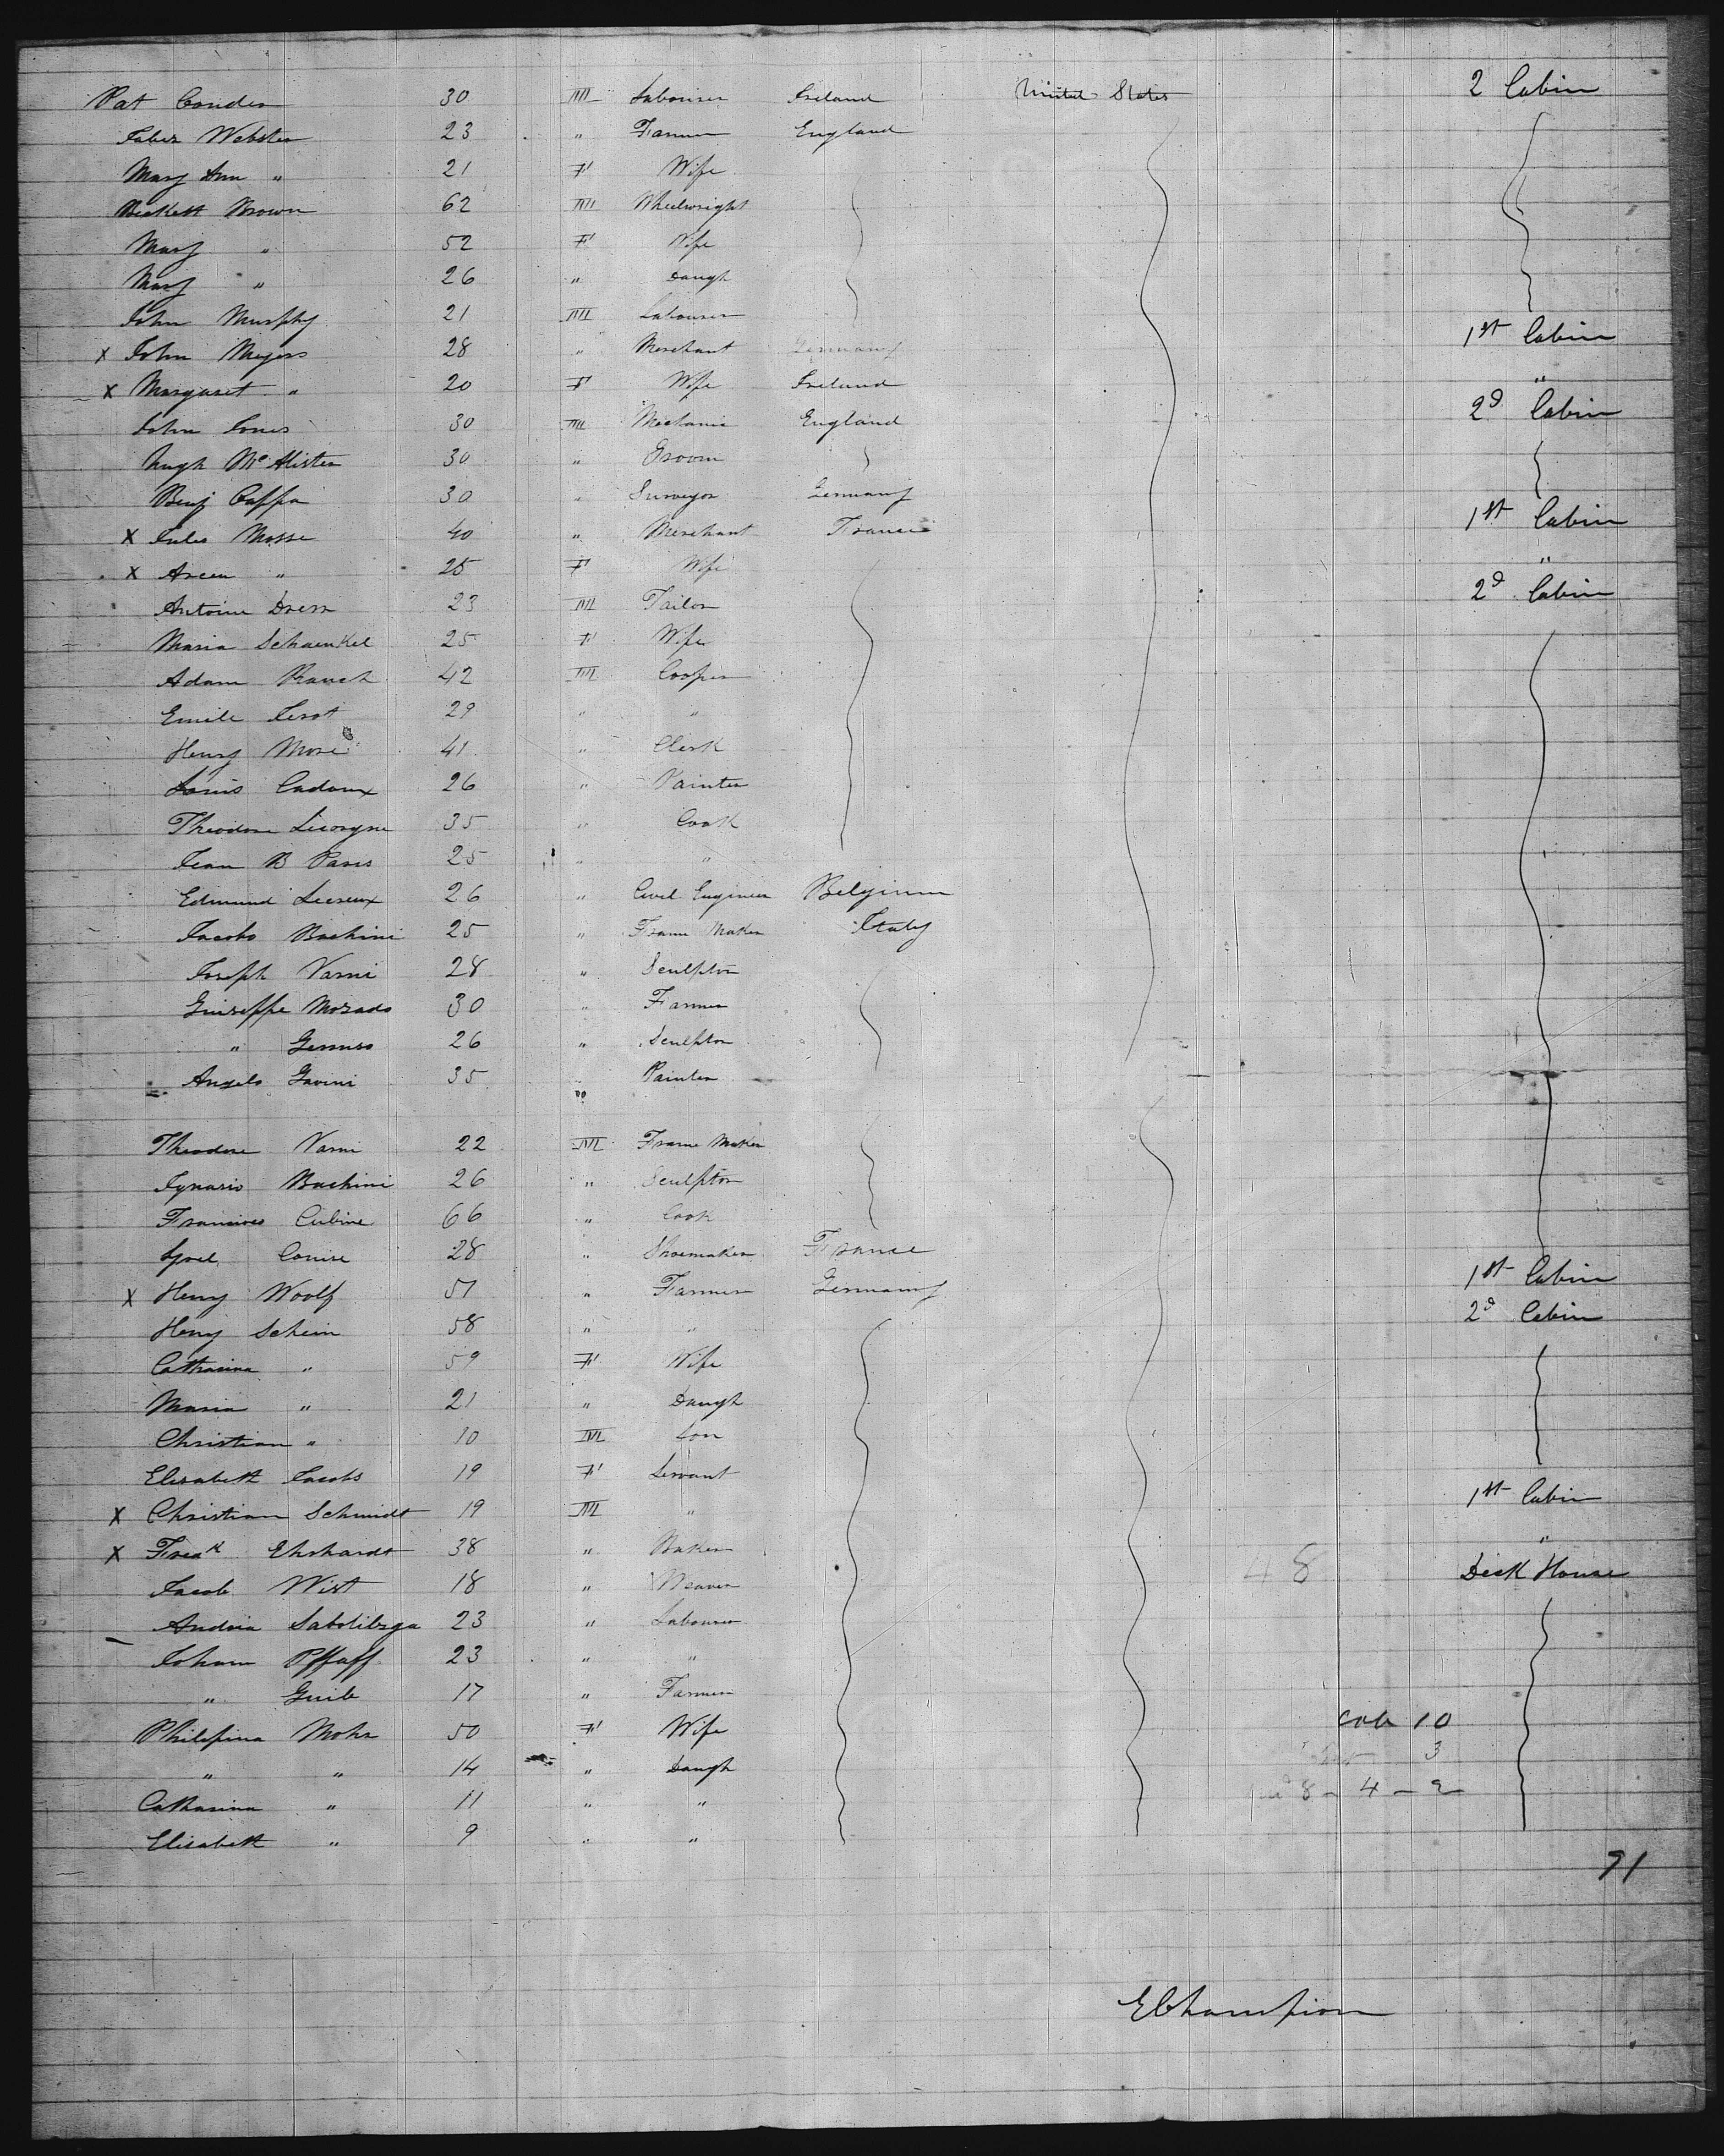 Pat Conder 30 M Labourer Ireland United States 2 Cabin
Jabez Webster 23 " Farmer England
Mary Ann " 21 F Wife
Beckett Brown 62 M Wheelwright
Mary " 52 F Wife
Mary " 26 " Daugh
John Murphy 21 M Labourer
x John Meyers 28 " Merchant Germany 1st Cabin
x Margaret " 20 F Wife Ireland "
John Jones 30 M Mechanic England 2d Cabin
Hugh McAlister 30 " Groom
Benj Cappa 30 " Surveyor Germany
x Jules Mosse 40 " Merchant France 1st Cabin
x " 25 F Wife "
Antoine 23 M Tailor 2d Cabin
Maria Schaenkel 25 F Wife
Adam Rauch 42 M Cooper
Emile 29 " "
Henry More 41 " Clerk
Louis Cadoux 26 " Painter
Theodore 35 " Cook
Jean B Paris 25 " "
Edmund 26 " Civil Engineer Belgium
Jacobo Bachini 25 " Frame Maker Italy
Joseph Varni 28 " Sculptor
Giuseppe Morado 30 " Farmer
" 26 " Sculptor
Angelo Gavini 35 " Painter
Theodore Varni 22 M Frame Maker
Ignasio Bachini 26 " Sculptor
66 " Cook
28 " Shoemaker France
x Henry Woolf 51 " Farmer Germany 1st Cabin
Henry Schein 58 " " 2d Cabin
Catharina " 59 F Wife
Maria " 21 " Daugh
Christian " 10 M Son
Elisabeth Jacobs 19 F Servant
x Christian Schmidt 19 M " 1st Cabin
x Fredk Ehrhardt 38 " Baker "
Jacob Wist 18 " Weaver 48 Deck House
23 " Labourer
Johann Pffaff 23 " "
" 17 " Farmer
Philipina Mohr 50 F Wife Cab 10
" " 14 " Daugh 3
Catharina " 11 " " 8 - 4 - 2
Elisabeth " 9 " "
91
E Champion